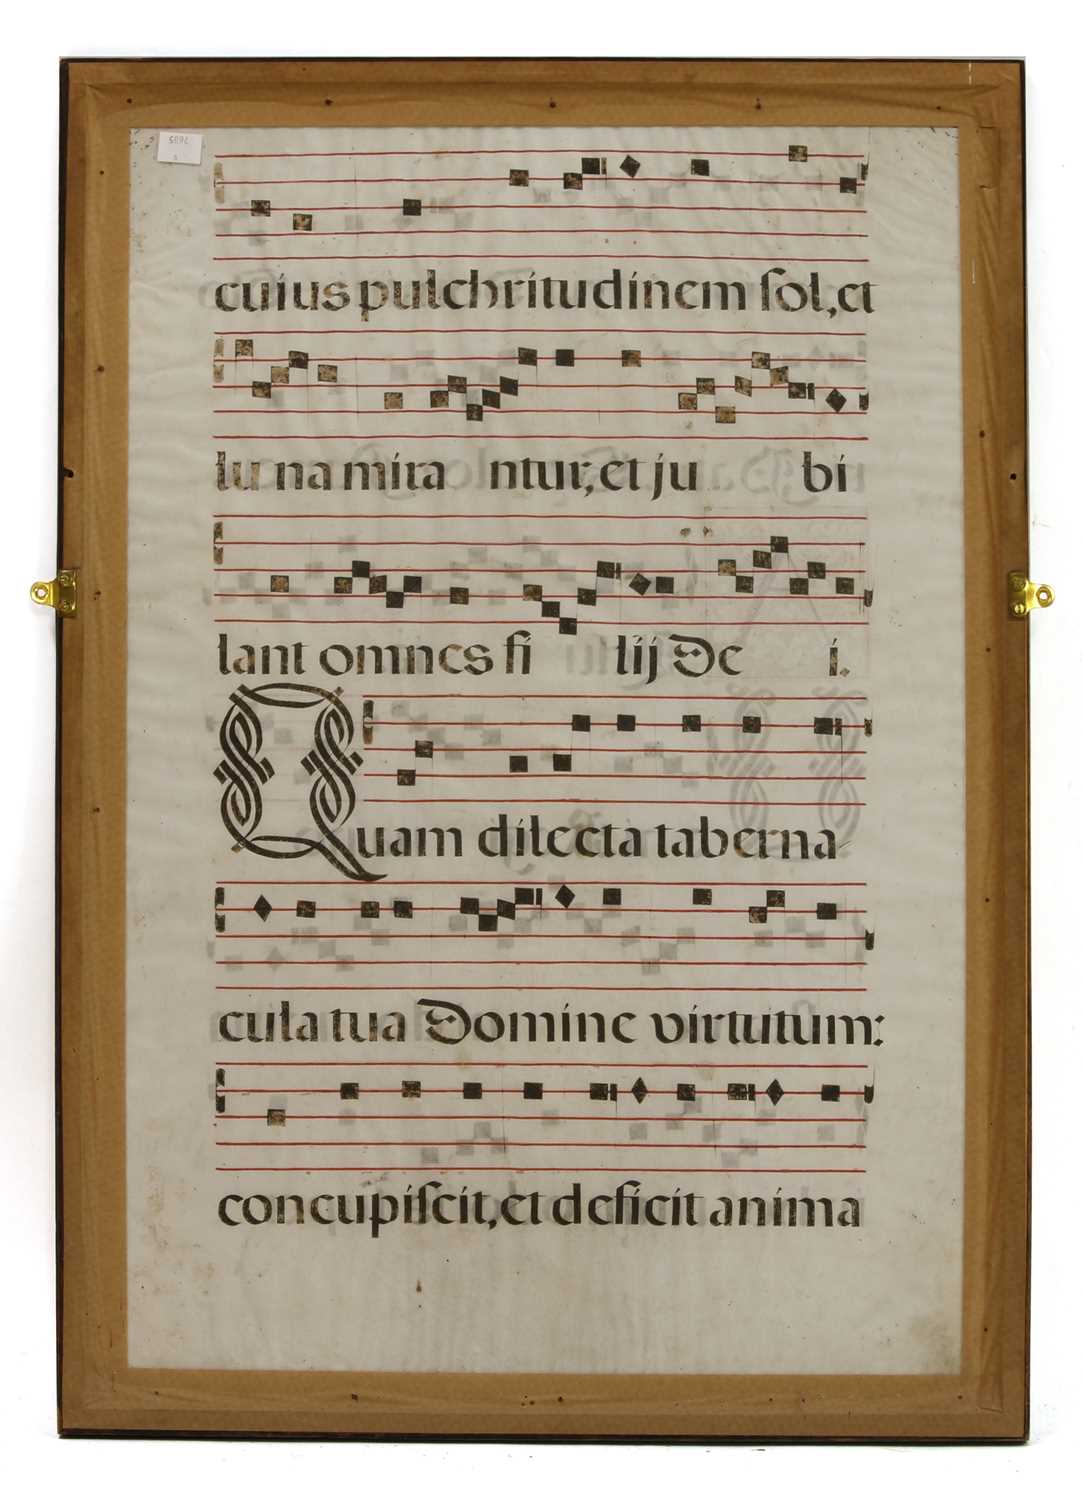 cuius pulchritudinem sol, et
lu na mira ntur, et ju bi
lant omnes fi lij De i.
Quam dilecta taberna
cula tua Domine virtutum:
concupiscit, et deficit anima